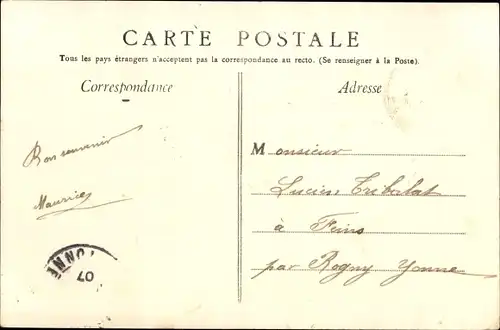 CARTE POSTALE
Tous les pays étrangers n'acceptent pas la correspondance au recto. (Se renseigner à la Poste).
Correspondance
Adresse
Bon souvenir
Maurice
Monsieur
Lucien Tribolat
à Feins
par Rogny Yonne
YONNE
07